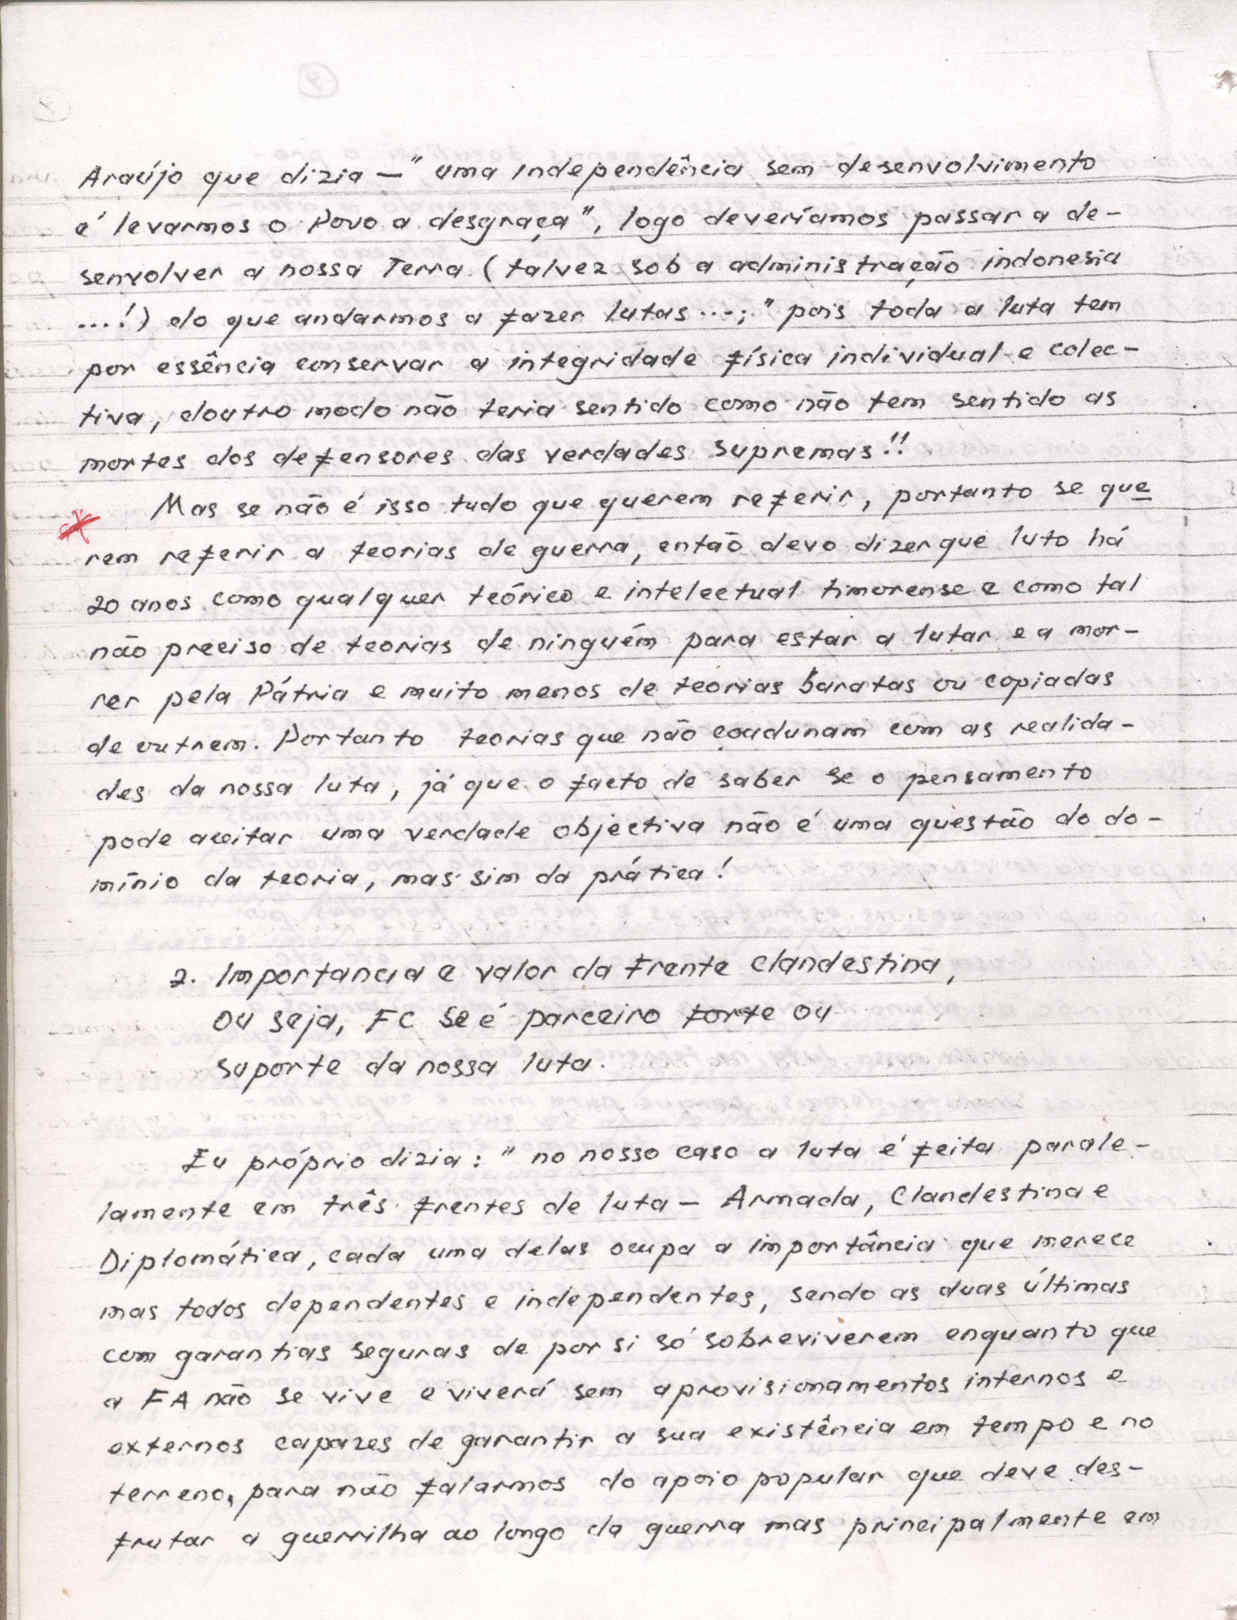 Araújo que dizia — " uma independência sem desenvolvimento
é levarmos o Povo a desgraça", logo deveríamos passar a de-
senvolver a nossa Terra (talvez sob a administração indonesia
...!) do que andarmos a fazer lutas ...; " pois toda a luta tem
por essência conservar a integridade física individual e colec-
tiva, doutro modo não teria sentido como não tem sentido as
mortes dos defensores das verdades supremas!!
Mas se não é isso tudo que querem referir, portanto se que
rem referir a teorias de guerra, então devo dizer que luto há
20 anos como qualquer teórico e intelectual timorense e como tal
não preciso de teorias de ninguém para estar a lutar e a mor-
rer pela Pátria e muito menos de teorias baratas ou copiadas
de outrem. Portanto teorias que não coadunam com as realida-
des da nossa luta, já que o facto de saber se o pensamento
pode aceitar uma verdade objectiva não é uma questão do do-
mínio da teoria, mas sim da prática!
2. Importancia e valor da Frente Clandestina,
ou seja, FC se é parceiro forte ou
suporte da nossa luta.
Eu próprio dizia: " no nosso caso a luta é feita parale-
lamente em três frentes de luta — Armada, Clandestina e
Diplomática, cada uma delas ocupa a importância que merece
mas todos dependentes e independentes, sendo as duas últimas
com garantias seguras de por si só sobreviverem enquanto que
a FA não se vive e viverá sem aprovisionamentos internos e
externos capazes de garantir a sua existência em tempo e no
terreno, para não falarmos do apoio popular que deve des-
frutar a guerrilha ao longo da guerra mas principalmente em